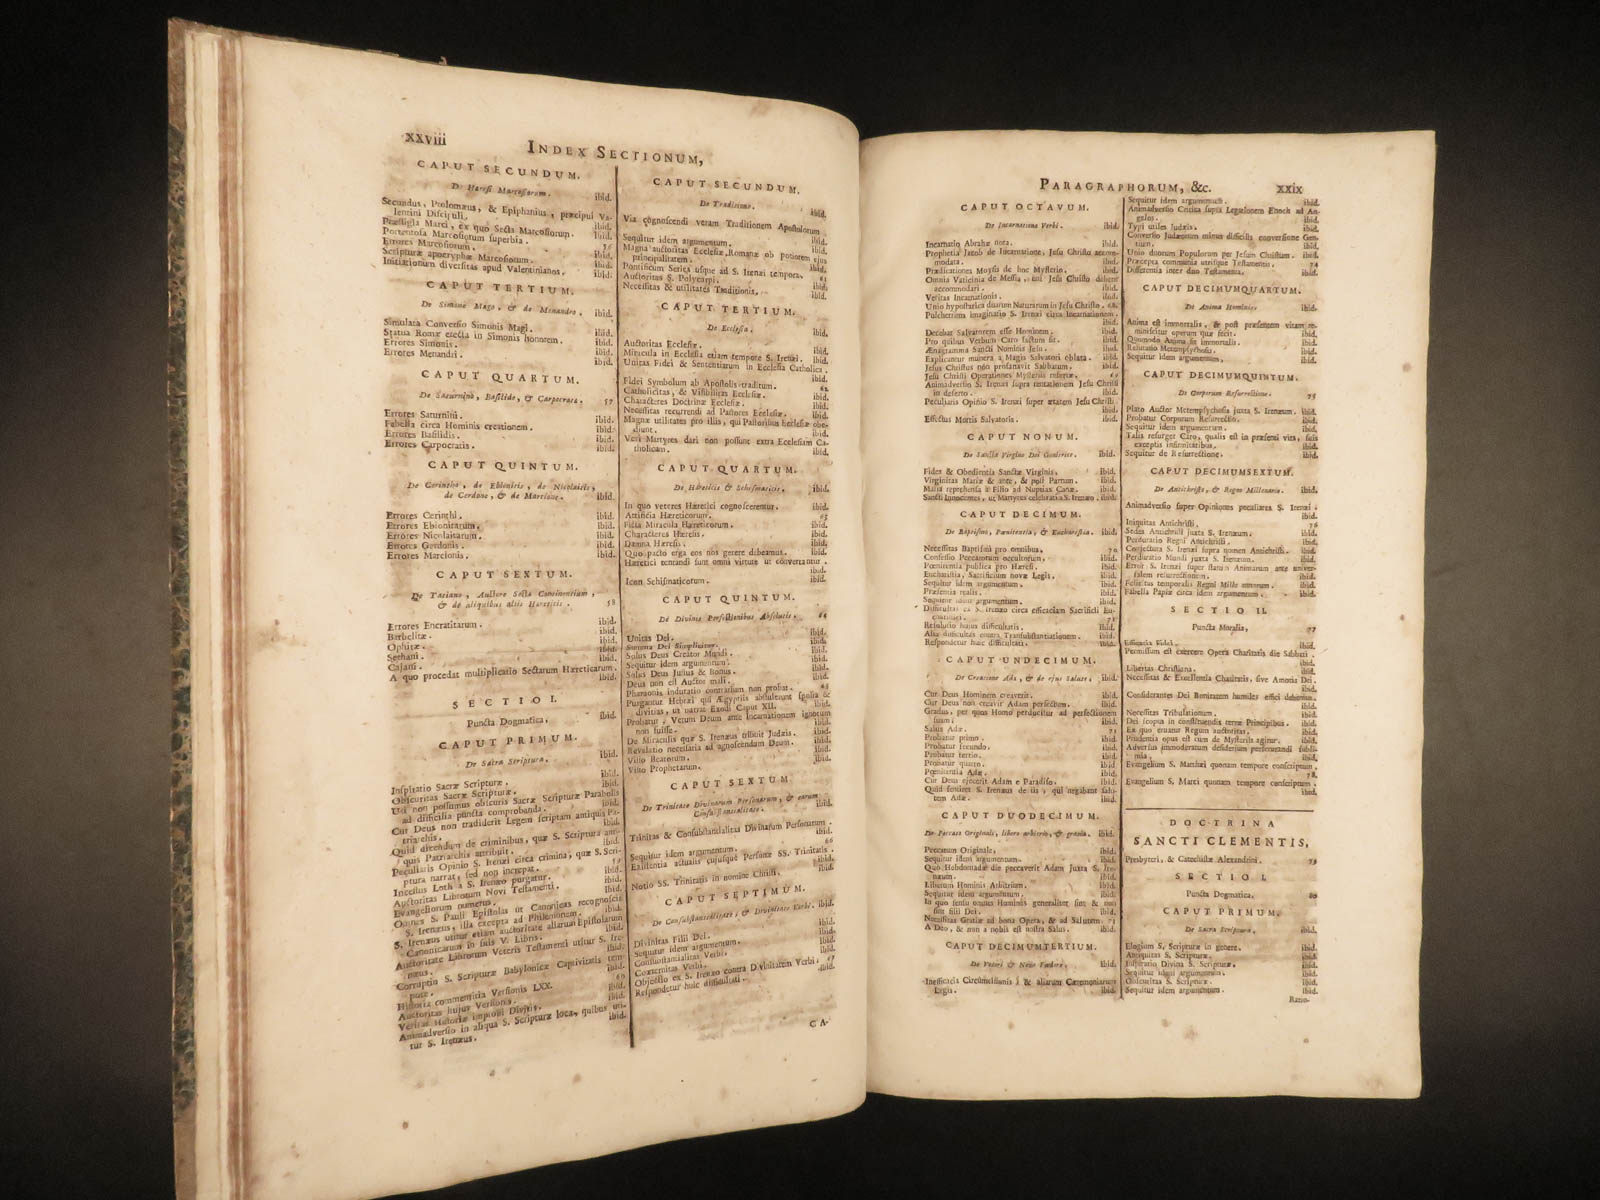 xxviii
INDEX SECTIONUM,
CAPUT SECUNDUM.
De Hæresi Marcosiorum. ibid.
Secundus, Ptolomæus, & Epiphanius, præcipui Va-
lentini Discipuli. ibid.
Præstigia Marci, ex quo Secta Marcosiorum. ibid.
Portentosa Marcosiorum superbia. ibid.
Errores Marcosiorum. 56
Scripturæ apocryphæ Marcosiorum. ibid.
Initiationum diversitas apud Valentinianos. ibid.
CAPUT TERTIUM.
De Simone Mago, & de Menandro. ibid.
Simulata Conversio Simonis Magi. ibid.
Statua Romæ erecta in Simonis honorem. ibid.
Errores Simonis. ibid.
Errores Menandri. ibid.
CAPUT QUARTUM.
De Saturnino, Basilide, & Carpocrate. 57
Errores Saturnini. ibid.
Fabella circa Hominis creationem. ibid.
Errores Basilidis. ibid.
Errores Carpocratis. ibid.
CAPUT QUINTUM.
De Cerintho, de Ebionitis, de Nicolaitis,
de Cerdone, & de Marcione. ibid.
Errores Cerinthi. ibid.
Errores Ebionitarum. ibid.
Errores Nicolaitarum. ibid.
Errores Cerdonis. ibid.
Errores Marcionis. ibid.
CAPUT SEXTUM.
De Tatiano, Auctore Sectæ Continentium,
& de aliquibus aliis Hæreticis. 58
Errores Encratitarum. ibid.
Birbelitæ. ibid.
Ophitæ. ibid.
Sethani. ibid.
Cajani. ibid.
A quo procedat multiplicatio Sectarum Hæreticarum. ibid.
SECTIO I.
Puncta Dogmatica, ibid.
CAPUT PRIMUM.
De Sacra Scriptura. ibid.
Inspiratio Sacræ Scripturæ. ibid.
Obscuritas Sacræ Scripturæ. ibid.
Uti non possumus obscuris Sacræ Scripturæ Parabolis
ad difficilia puncta comprobanda. ibid.
Cur Deus non tradiderit Legem scriptam antiquis Pa-
triarchis. ibid.
Quid dicendum de criminibus, quæ S. Scriptura anti-
quis Patriarchis attribuit. ibid.
Peculiaris Opinio S. Irenæi circa crimina, quæ S. Scri-
ptura narrat, sed non increpat. 59
Incestus Loth a S. Irenæo purgatur. ibid.
Auctoritas Librorum Novi Testamenti. ibid.
Evangeliorum numerus. ibid.
Omnes S. Pauli Epistolas ut Canonicas recognoscit
S. Irenæus, illa excepta ad Philemonem. ibid.
S. Irenæus utitur etiam auctoritate aliarum Epistolarum
Canonicarum in suis V. Libris. ibid.
Auctoritate Librorum Veteris Testamenti utitur S. Ire-
næus. ibid.
Corruptio S. Scripturæ Babylonicæ Captivitatis tem-
pore. ibid.
Historia commentitia Versionis LXX. 60
Auctoritas hujus Versionis. ibid.
Veritas Historiæ impiorum Divitis. ibid.
Animadversio in aliqua S. Scripturæ loca, quibus uti-
tur S. Irenæus. ibid.
CAPUT SECUNDUM.
De Traditione. ibid.
Via cognoscendi veram Traditionem Apostolorum.
ibid.
Sequitur idem argumentum. ibid.
Magna auctoritas Ecclesiæ Romanæ ob potiorem ejus
principalitatem. ibid.
Pontificum Series usque ad S. Irenæi tempora. ibid.
Auctoritas S. Polycarpi. 61
Necessitas & utilitates Traditionis. ibid.
CAPUT TERTIUM.
De Ecclesia. ibid.
Auctoritas Ecclesiæ. ibid.
Miracula in Ecclesia etiam tempore S. Irenæi. ibid.
Unitas Fidei & Sententiarum in Ecclesia Catholica.
ibid.
Fidei Symbolum ab Apostolis traditum. 62
Catholicitas, & Visibilitas Ecclesiæ. ibid.
Characteres Doctrinæ Ecclesiæ. ibid.
Necessitas recurrendi ad Pastores Ecclesiæ. ibid.
Magnæ utilitates pro illis, qui Pastoribus Ecclesiæ obe-
diunt. ibid.
Veri Martyres dari non possunt extra Ecclesiam Ca-
tholicam. ibid.
CAPUT QUARTUM.
De Hæreticis & Schismaticis. ibid.
In quo veteres Hæretici cognoscerentur. ibid.
Artificia Hæreticorum. 63
Ficta Miracula Hæreticorum. ibid.
Characteres Hæresis. ibid.
Damna Hæresis. ibid.
Quo pacto erga eos nos gerere debeamus. ibid.
Hæretici tentandi sunt omni virtute ut convertantur.
ibid.
Icon Schismaticorum. ibid.
CAPUT QUINTUM.
De Divinis Perfectionibus Absolutis. 64
Unitas Dei. ibid.
Summa Dei Simplicitas. ibid.
Solus Deus Creator Mundi. ibid.
Sequitur idem argumentum. ibid.
Solus Deus Justus & Bonus. ibid.
Deus non est Auctor mali. ibid.
Pharaonis induratio contrarium non probat. 65
Purgantur Hebræi qui Ægyptiis abstulerunt spolia &
divitias, ut narrat Exodi Caput XII. ibid.
Probatur, Verum Deum ante Incarnationem ignotum
non fuisse. ibid.
De Miraculis quæ S. Irenæus tribuit Judæis. ibid.
Revelatio necessaria ad agnoscendam Deum. ibid.
Visio Beatorum. ibid.
Visio Prophetarum. ibid.
CAPUT SEXTUM
De Trinitate Divinarum Personarum, & earum
Consubstantialitate. ibid.
Trinitas & Consubstantialitas Divinarum Personarum.
ibid.
Sequitur idem argumentum. 66
Existentia actualis cujusque Personæ SS. Trinitatis.
ibid.
Notio SS. Trinitatis in nomine Christi. ibid.
CAPUT SEPTIMUM.
De Consubstantialitate, & Divinitate Verbi. ibid.
Divinitas Filii Dei. ibid.
Sequitur idem argumentum. ibid.
Consubstantialitas Verbi. ibid.
Coæternitas Verbi. ibid.
Objectio ex S. Irenæo contra Divinitatem Verbi. 67
Respondetur huic difficultati. ibid.
CA-
PARAGRAPHORUM, &c. xxix
CAPUT OCTAVUM.
De Incarnatione Verbi. ibid.
Incarnatio Abrahæ nota. ibid.
Prophetia Jacob de Incarnatione, Jesu Christo accom-
modata. ibid.
Prædicationes Moysis de hoc Mysterio. ibid.
Omnia Vaticinia de Messia, uni Jesu Christo debent
accommodari. ibid.
Veritas Incarnationis. ibid.
Unio hypostatica duarum Naturarum in Jesu Christo. 68
Pulcherrima imaginatio S. Irenæi circa Incarnationem.
ibid.
Decebat Salvatorem esse Hominem. ibid.
Pro quibus Verbum Caro factum sit. ibid.
Ænagramma Sancti Nominis Jesu. ibid.
Explicantur munera a Magis Salvatori oblata. ibid.
Jesus Christus non profanavit Sabbatum. ibid.
Jesu Christi Operationes Mysteriis refertæ. 69
Animadversio S. Irenæi supra tentationem Jesu Christi
in deserto. ibid.
Peculiaris Opinio S. Irenæi super ætatem Jesu Christi.
ibid.
Effectus Mortis Salvatoris. ibid.
CAPUT NONUM.
De Sancta Virgine Dei Genitrice. ibid.
Fides & Obedientia Sanctæ Virginis. ibid.
Virginitas Mariæ & ante, & post Partum. ibid.
Maria reprehensa a Filio ad Nuptias Canæ. ibid.
Sancti Innocentes, ut Martyres celebrati a S. Irenæo. ibid.
CAPUT DECIMUM.
De Baptismo, Pœnitentia, & Eucharistia. ibid.
Necessitas Baptismi pro omnibus. 70
Confessio Peccatorum occultorum. ibid.
Pœnitentia publica pro Hæresi. ibid.
Eucharistia, Sacrificium novæ Legis. ibid.
Sequitur idem argumentum. ibid.
Præsentia realis. ibid.
Sequitur idem argumentum. ibid.
Difficultas ex S. Irenæo circa efficaciam Sacrificii Eu-
charistici. 71
Resolutio hujus difficultatis. ibid.
Alia difficultas contra Transubstantiationem. ibid.
Respondetur huic difficultati. ibid.
CAPUT UNDECIMUM.
De Creatione Adæ, & de ejus Salute. ibid.
Cur Deus Hominem creaverit. ibid.
Cur Deus non creavit Adam perfectum. ibid.
Gradus, per quos Homo perducitur ad perfectionem
suam. ibid.
Salus Adæ. 72
Probatur primo. ibid.
Probatur secundo. ibid.
Probatur tertio. ibid.
Probatur quarto. ibid.
Pœnitentia Adæ. ibid.
Cur Deus ejecerit Adam e Paradiso. ibid.
Quid sentiret S. Irenæus de iis, qui negabant salu-
tem Adæ. ibid.
CAPUT DUODECIMUM.
De Peccato Originali, libero arbitrio, & gratia. ibid.
Peccatum Originale. ibid.
Sequitur idem argumentum. ibid.
Quo Hebdomadæ die peccaverit Adam juxta S. Ire-
næum. ibid.
Liberum Hominis Arbitrium. ibid.
Sequitur idem argumentum. ibid.
In quo sensu omnes Homines generaliter sint & non
sint filii Dei. ibid.
Necessitas Gratiæ ad bona Opera, & ad Salutem. 73
A Deo, & non a nobis est nostra Salus. ibid.
CAPUT DECIMUMTERTIUM.
De Veteri & Novo Fœdere. ibid.
Inefficacia Circumcisionis & aliarum Cæremoniarum
Legis. ibid.
Sequitur idem argumentum. ibid.
Animadversio Critica supra Legationem Enoch ad An-
geles. ibid.
Typi utiles Judæis. ibid.
Conversio Judæorum minus difficilis conversione Gen-
tium. ibid.
Unio duorum Populorum per Jesum Christum. ibid.
Præcepta communia utrisque Testamento. 74
Differentia inter duo Testamenta. ibid.
CAPUT DECIMUMQUARTUM.
De Anima Hominis. ibid.
Anima est immortalis, & post præsentem vitam re-
miniscitur operum quæ fecit. ibid.
Quomodo Anima sit immortalis. ibid.
Refutatio Metempsychosis. ibid.
Sequitur idem argumentum. ibid.
CAPUT DECIMUMQUINTUM.
De Corporum Resurrectione. 75
Plato Auctor Metempsychosis juxta S. Irenæum. ibid.
Probatur Corporum Resurrectio. ibid.
Sequitur idem argumentum. ibid.
Talis resurget Caro, qualis est in præsenti vita, suis
exceptis infirmitatibus. ibid.
Sequitur de Resurrectione. ibid.
CAPUT DECIMUMSEXTUM.
De Antichristo, & Regno Millenario. ibid.
Animadversio super Opiniones peculiares S. Irenæi.
ibid.
Iniquitas Antichristi. 76
Sedes Antichristi juxta S. Irenæum. ibid.
Perduratio Regni Antichristi. ibid.
Conjectura S. Irenæi supra nomen Antichristi. ibid.
Perduratio Mundi juxta S. Irenæum. ibid.
Error S. Irenæi super statum Animarum ante univer-
salem resurrectionem. ibid.
Felicitas temporalis Regni Mille annorum. ibid.
Fabella Papiæ circa idem argumentum. ibid.
SECTIO II.
Puncta Moralia, 77
Efficacia Fidei. ibid.
Permissum est exercere Opera Charitatis die Sabbati.
ibid.
Libertas Christiana. ibid.
Necessitas & Excellentia Charitatis, sive Amoris Dei.
ibid.
Considerantes Dei Bonitatem humiles effici debemus.
ibid.
Necessitas Tribulationum. ibid.
Dei scopus in constituendis terræ Principibus. ibid.
Ex quo eruatur Regum auctoritas. ibid.
Prudentia opus est cum de Mysteriis agitur. ibid.
Adversus immoderatum desiderium perscrutandi subli-
mia. ibid.
Evangelium S. Matthæi quonam tempore conscriptum.
78.
Evangelium S. Marci quonam tempore conscriptum.
ibid.
DOCTRINA
SANCTI CLEMENTIS,
Presbyteri, & Catechistæ Alexandrini. 79
SECTIO I.
Puncta Dogmatica, 80
CAPUT PRIMUM.
De Sacra Scriptura, ibid.
Elogium S. Scripturæ in genere. ibid.
Antiquitas S. Scripturæ. ibid.
Inspiratio Divina S. Scripturæ. ibid.
Sequitur idem argumentum. ibid.
Obscuritas S. Scripturæ. ibid.
Sequitur idem argumentum. ibid.
Ratio-